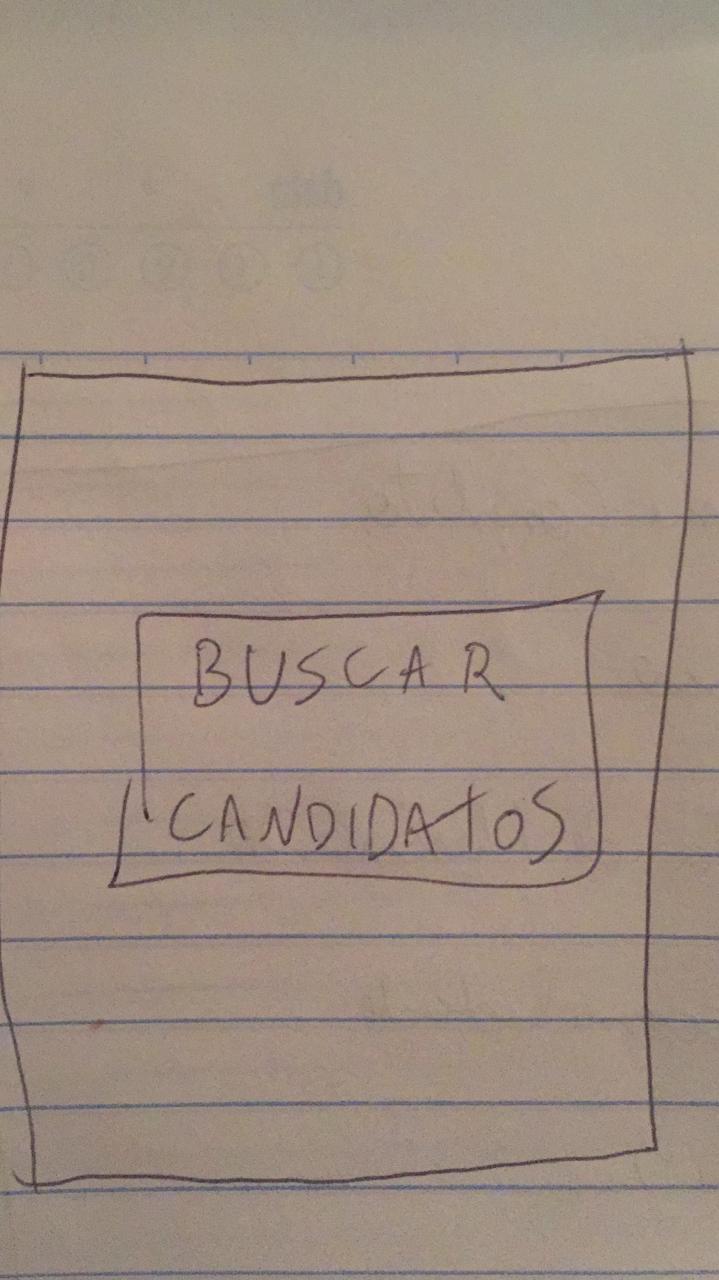 BUSCAR
CANDIDATOS